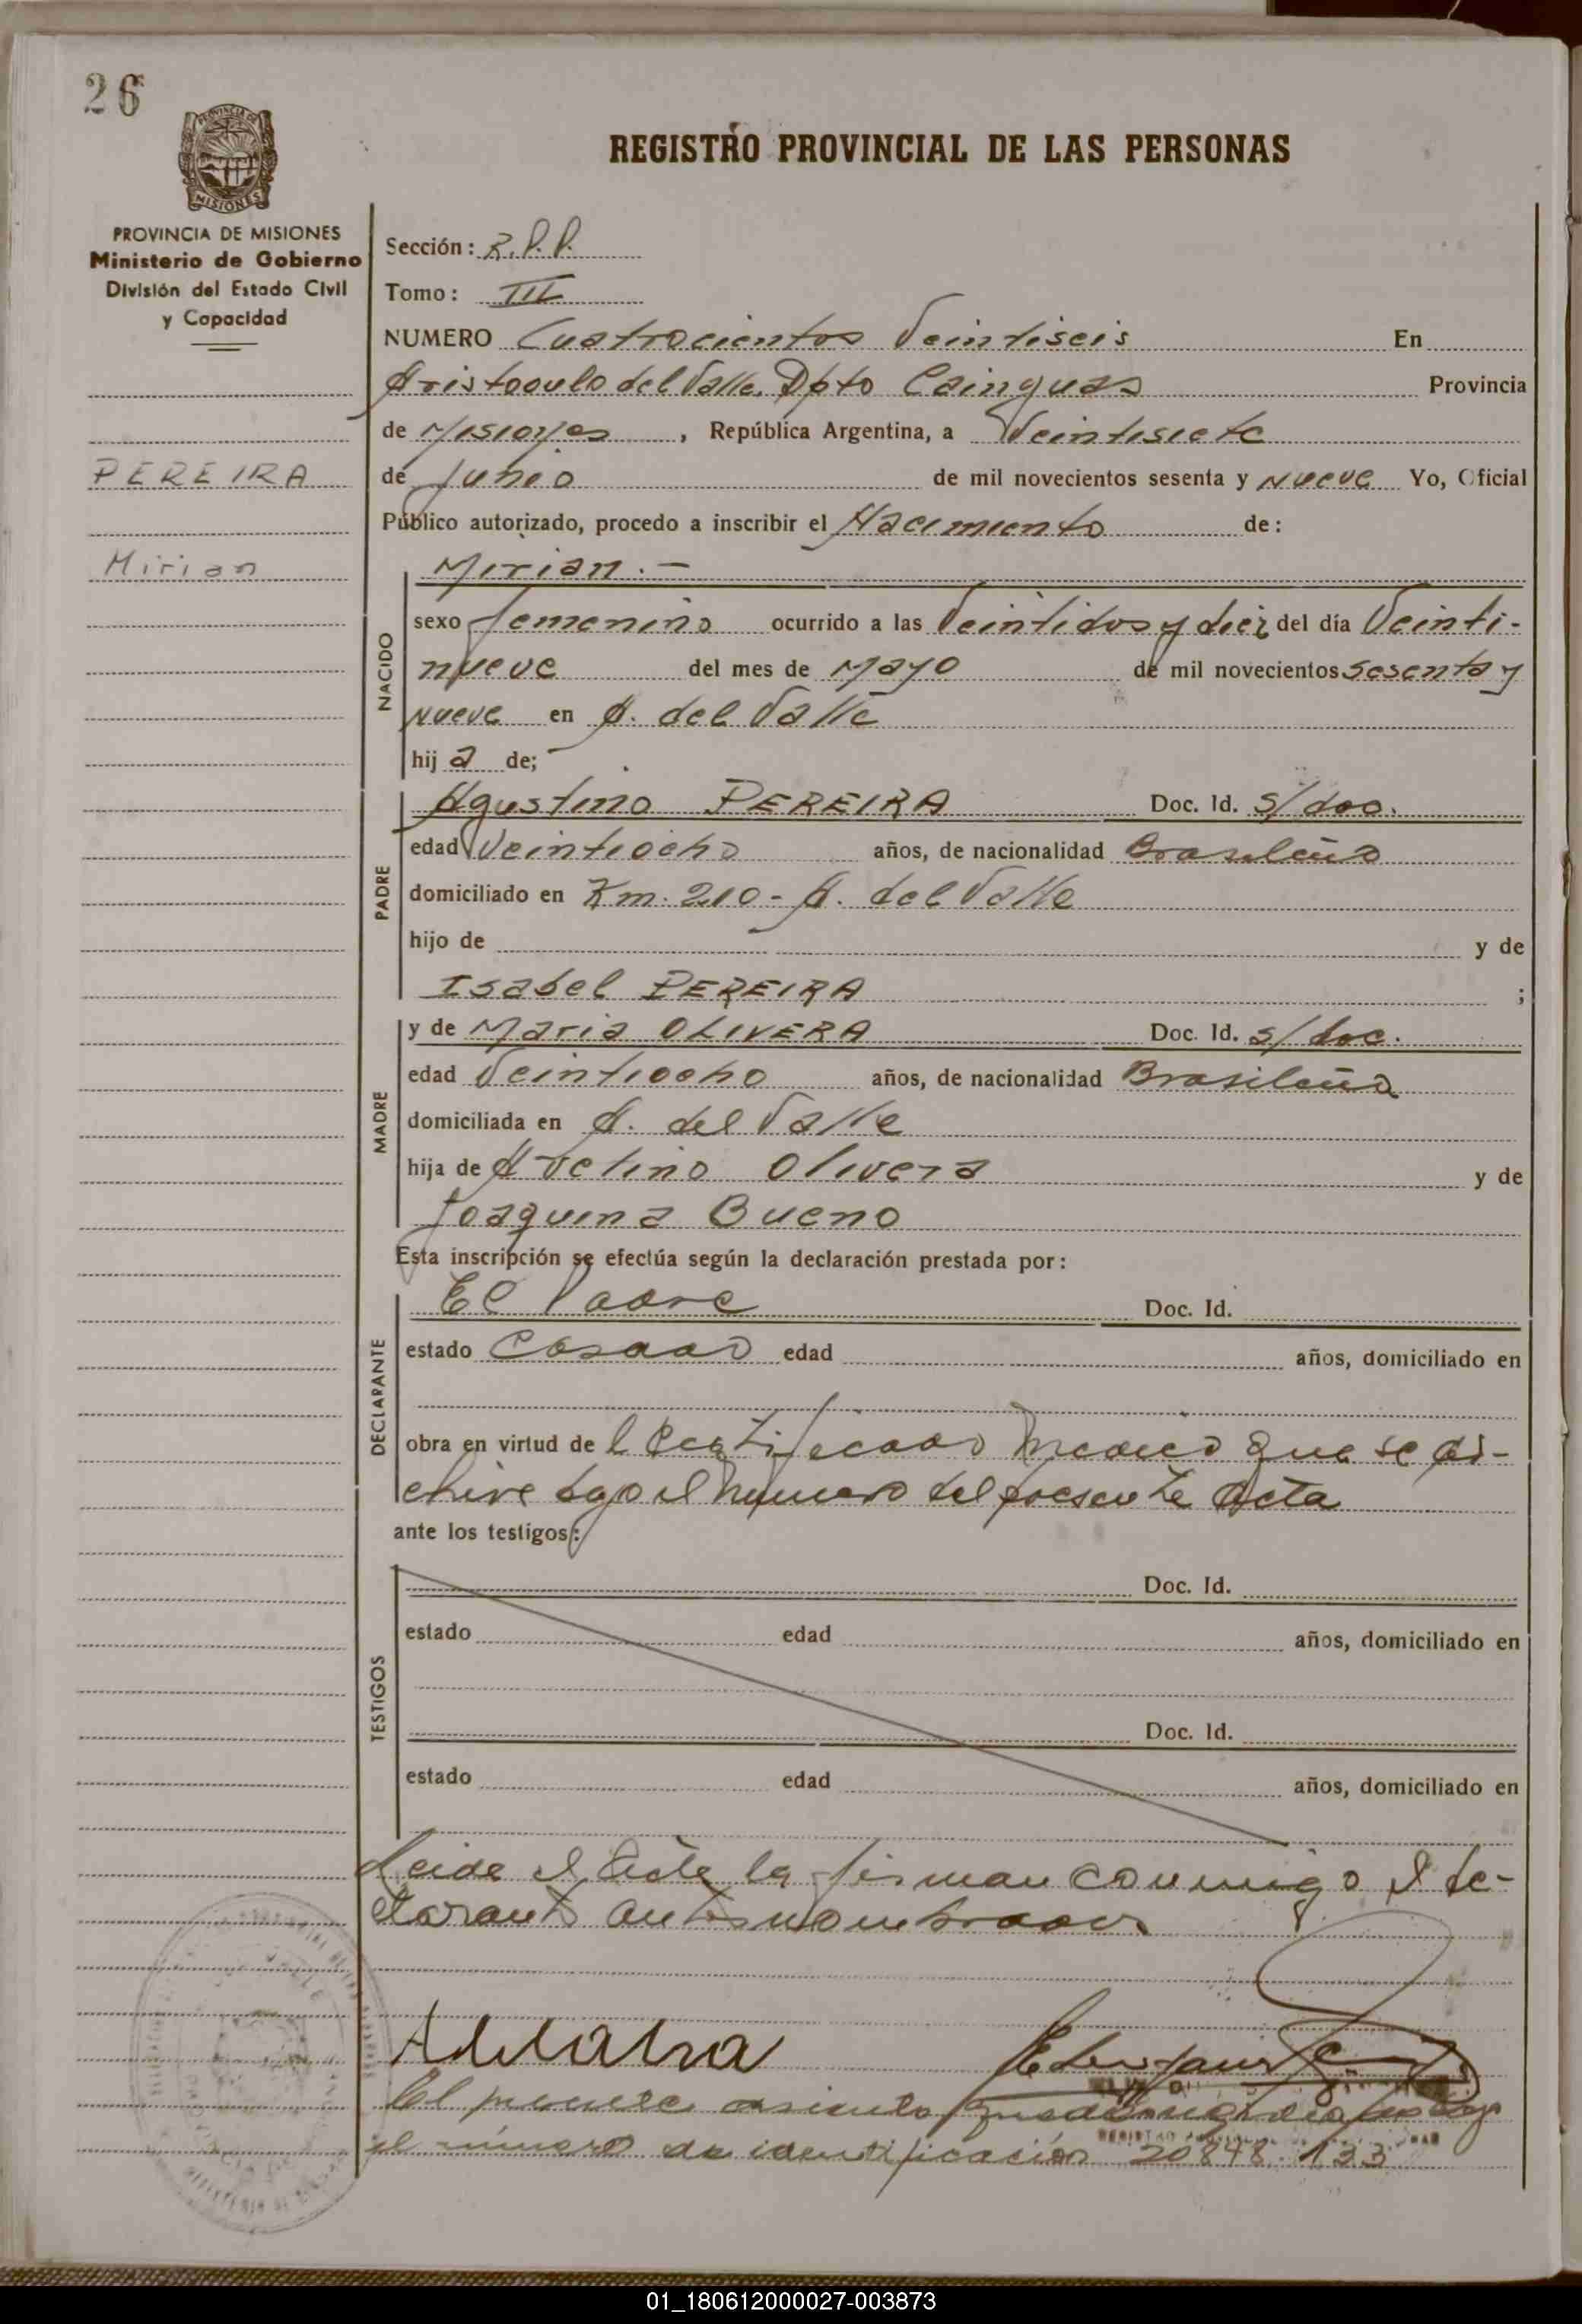 26
REGISTRO PROVINCIAL DE LAS PERSONAS
PROVINCIA DE MISIONES
Ministerio de Gobierno
División del Estado Civil
y Capacidad
PEREIRA
Mirian
Sección: R.P.P.
Tomo: III
NUMERO Cuatrocientos Veintiseis En
Aristobulo del Valle, Dpto Cainguas Provincia
de Misiones, República Argentina, a Veintisiete
de Junio de mil novecientos sesenta y nueve Yo, Oficial
Público autorizado, procedo a inscribir el Nacimiento de:
NACIDO
Mirian.-
sexo femenino ocurrido a las Veintidos y diez del día Veinti-
nueve del mes de Mayo de mil novecientos sesenta y
nueve en A. del Valle
hija de;
PADRE
Agustino PEREIRA Doc. Id. s/doc.
edad Veintiocho años, de nacionalidad Brasileño
domiciliado en Km. 210 - A. del Valle
hijo de y de
Isabel PEREIRA ;
MADRE
y de Maria OLIVERA Doc. Id. s/doc.
edad Veintiocho años, de nacionalidad Brasileña
domiciliada en A. del Valle
hija de Avelino Olivera y de
Joaquina Bueno
Esta inscripción se efectúa según la declaración prestada por:
DECLARANTE
El Padre Doc. Id.
estado Casado edad años, domiciliado en
obra en virtud de l Certificado Medico que se ar-
chive bajo el numero del presente Acta
ante los testigos:
TESTIGOS
Doc. Id.
estado edad años, domiciliado en
Doc. Id.
estado edad años, domiciliado en
Leida el Acta la firman conmigo el de-
clarante antes nombrados
El presente asiento bajo
el número de identificación 20848.133
01_180612000027-003873